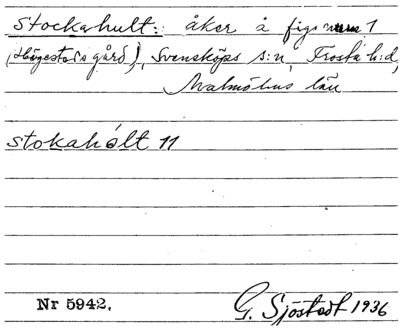 Stockahult: åker å fig. num 1
(Högestads gård), Svensköps s:n, Frosta h:d,
Malmöhus län
stokahólt 11
Nr 5942. G. Sjöstedt 1936